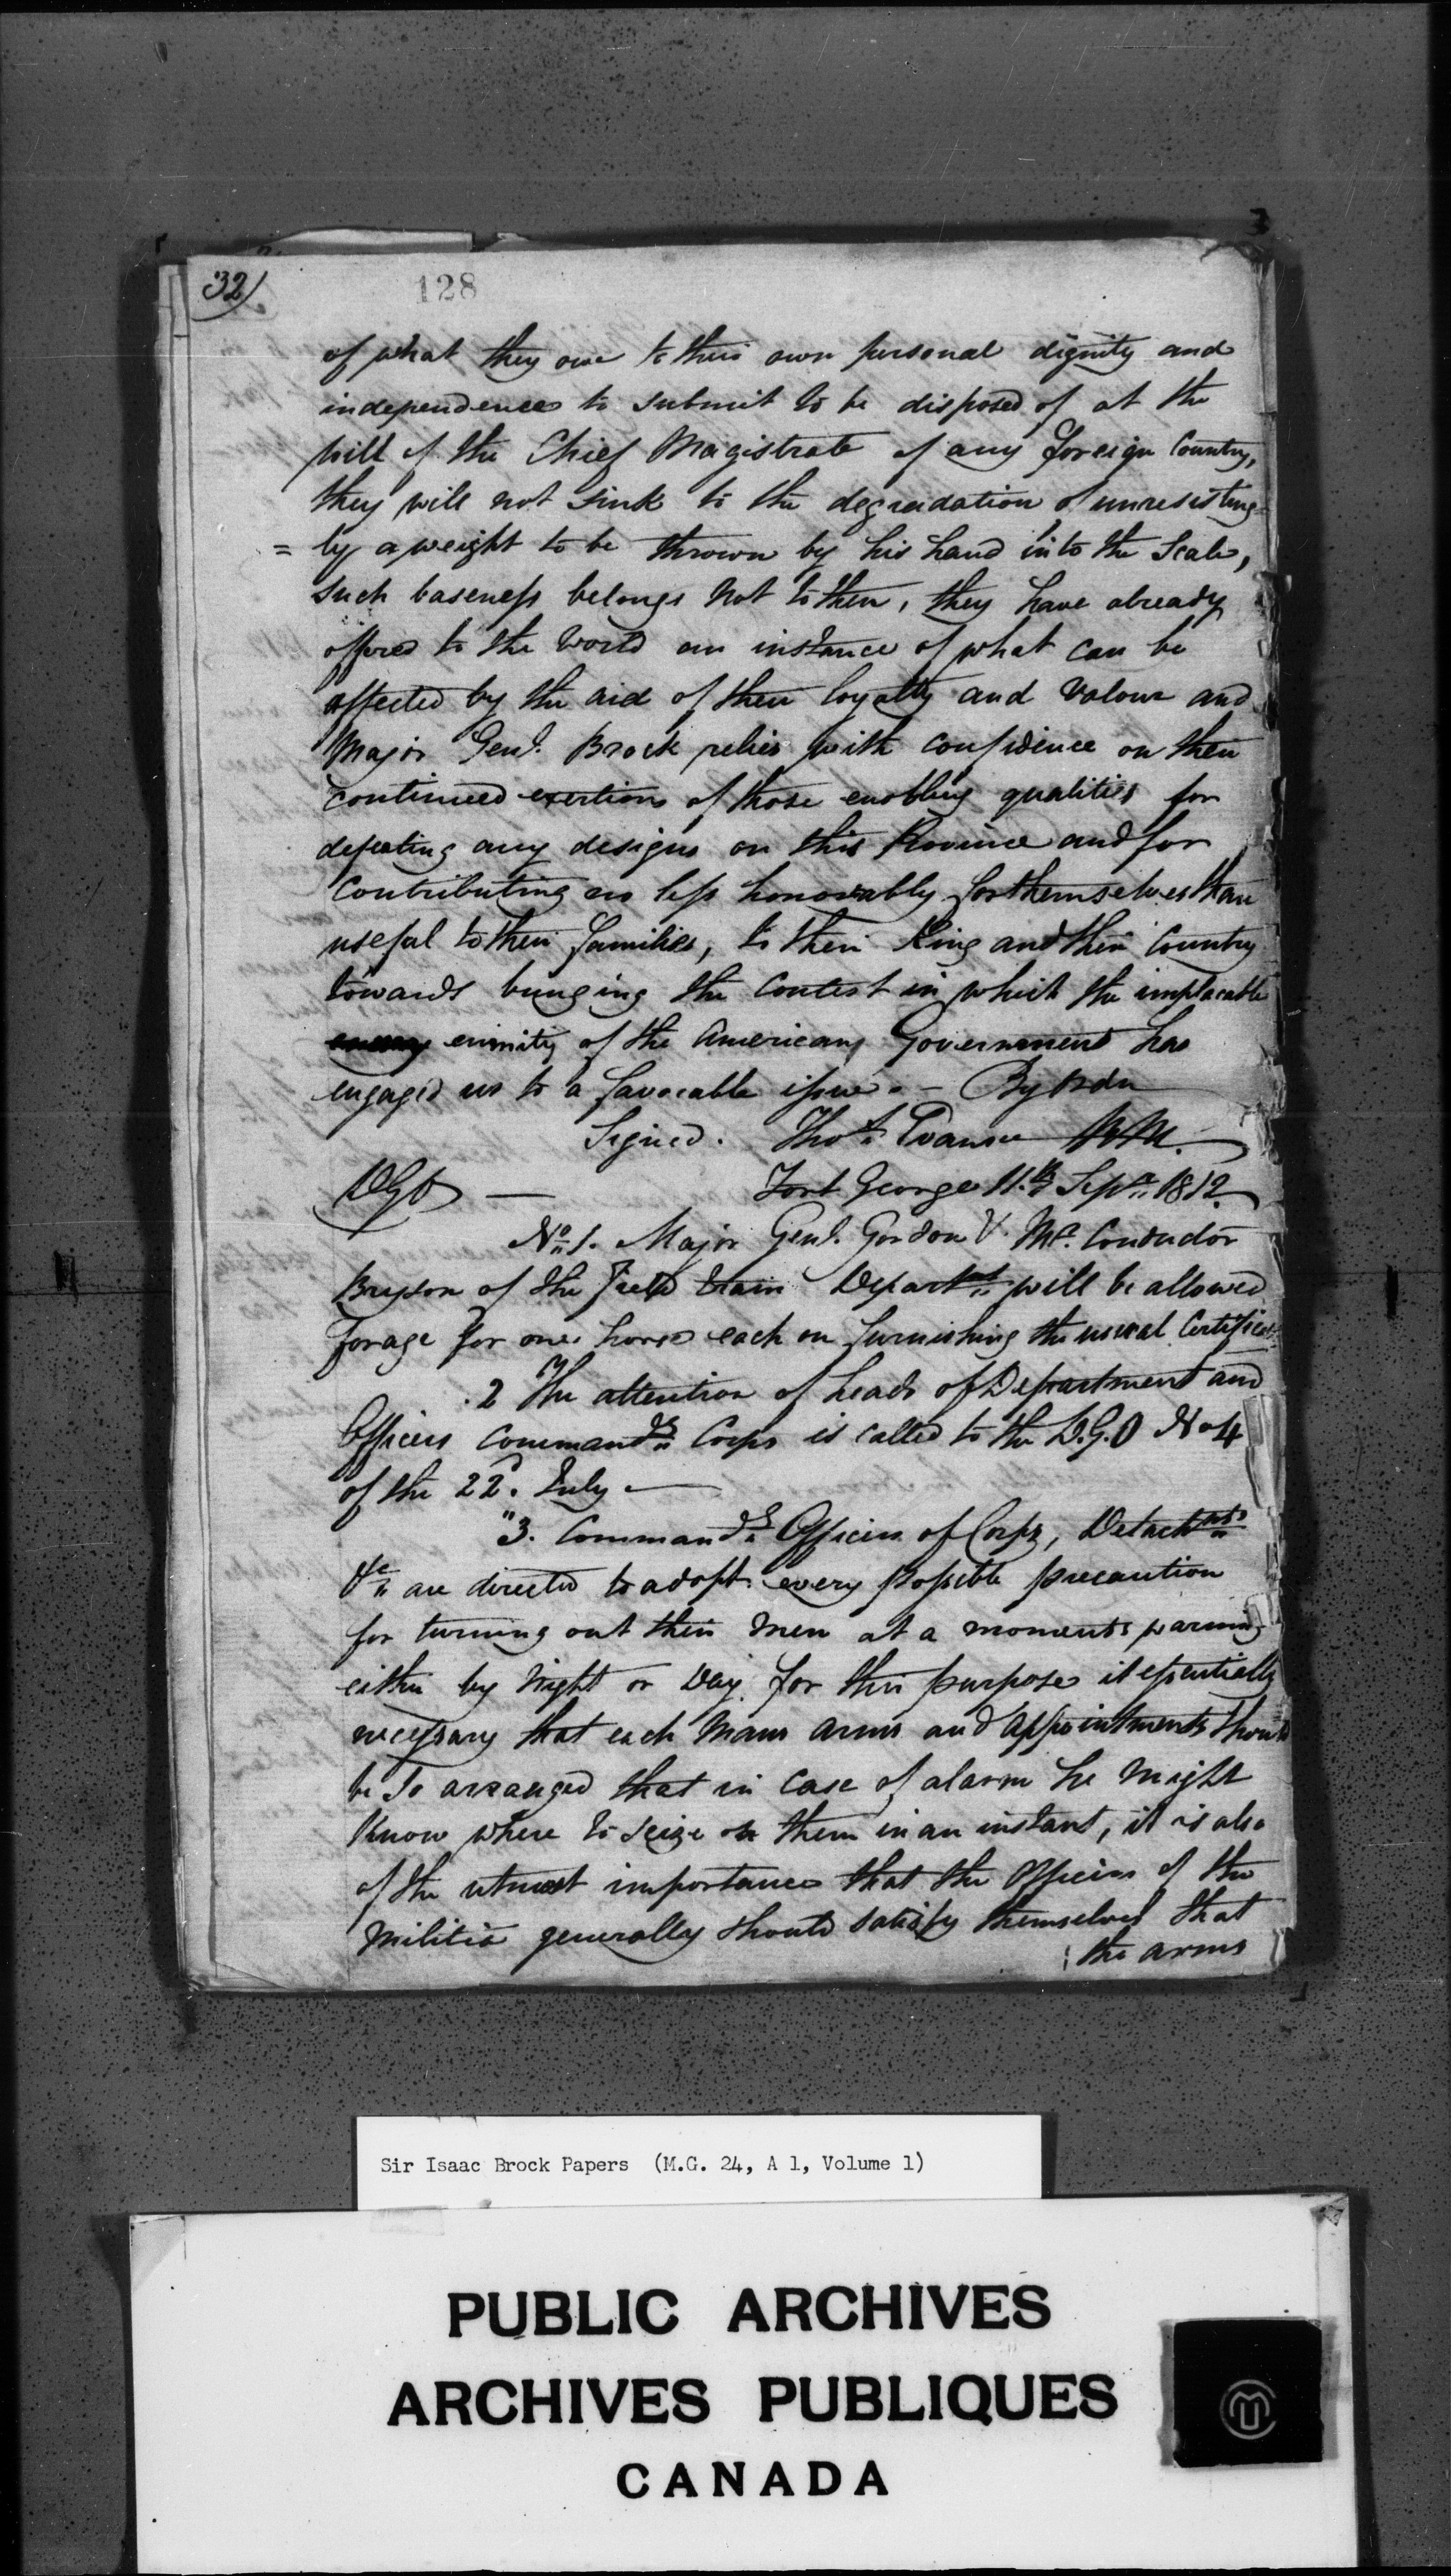 32)
128
of what they owe to their own personal dignity and
independence to submit to be disposed of at the
will of the Chief Magistrate of any foreign Country,
they will not sink to the degradation of unresisting
= ly a weight to be thrown by his hand into the Scale,
such baseness belongs not to them, they have already
offered to the World an instance of what can be
effected by the aid of their loyalty and Valour and
Major Genl. Brock relies with confidence on their
continued exertions of those enobling qualities for
defeating any designs on this Province and for
contributing no less honorably for themselves than
useful to their families, to their King and their Country
towards bringing the Contest in which the implacable
enmity of the American Government has
engaged us to a favorable issue. - By Order
Signed. Thos. Evans B.M.
DGO — Fort George 11.th Sepr. 1812
No. 1. Major Genl. Gordon & Mr. Conductor
Bryson of the Field Train Departmt will be allowed
forage for one horse each on furnishing the usual Certificat
.2 The attention of heads of Department and
Officers Commandg Corps is called to the D.G.O No 4
of the 22d. July —
"3. Commandg Officers of Corps, Detachmts
&c are directed to adopt every possible precaution
for turning out their Men at a moments warning
either by Night or Day for this purpose it essentially
necessary that each Mans Arms and Appointments should
be so arranged that in Case of alarm he Might
Know where to seize on them in an instant, it is also
of the utmost importance that the Officers of the
Militia generally should satisfy themselves that
the arms
Sir Isaac Brock Papers (M.G. 24, A 1, Volume 1)
PUBLIC ARCHIVES
ARCHIVES PUBLIQUES
CANADA